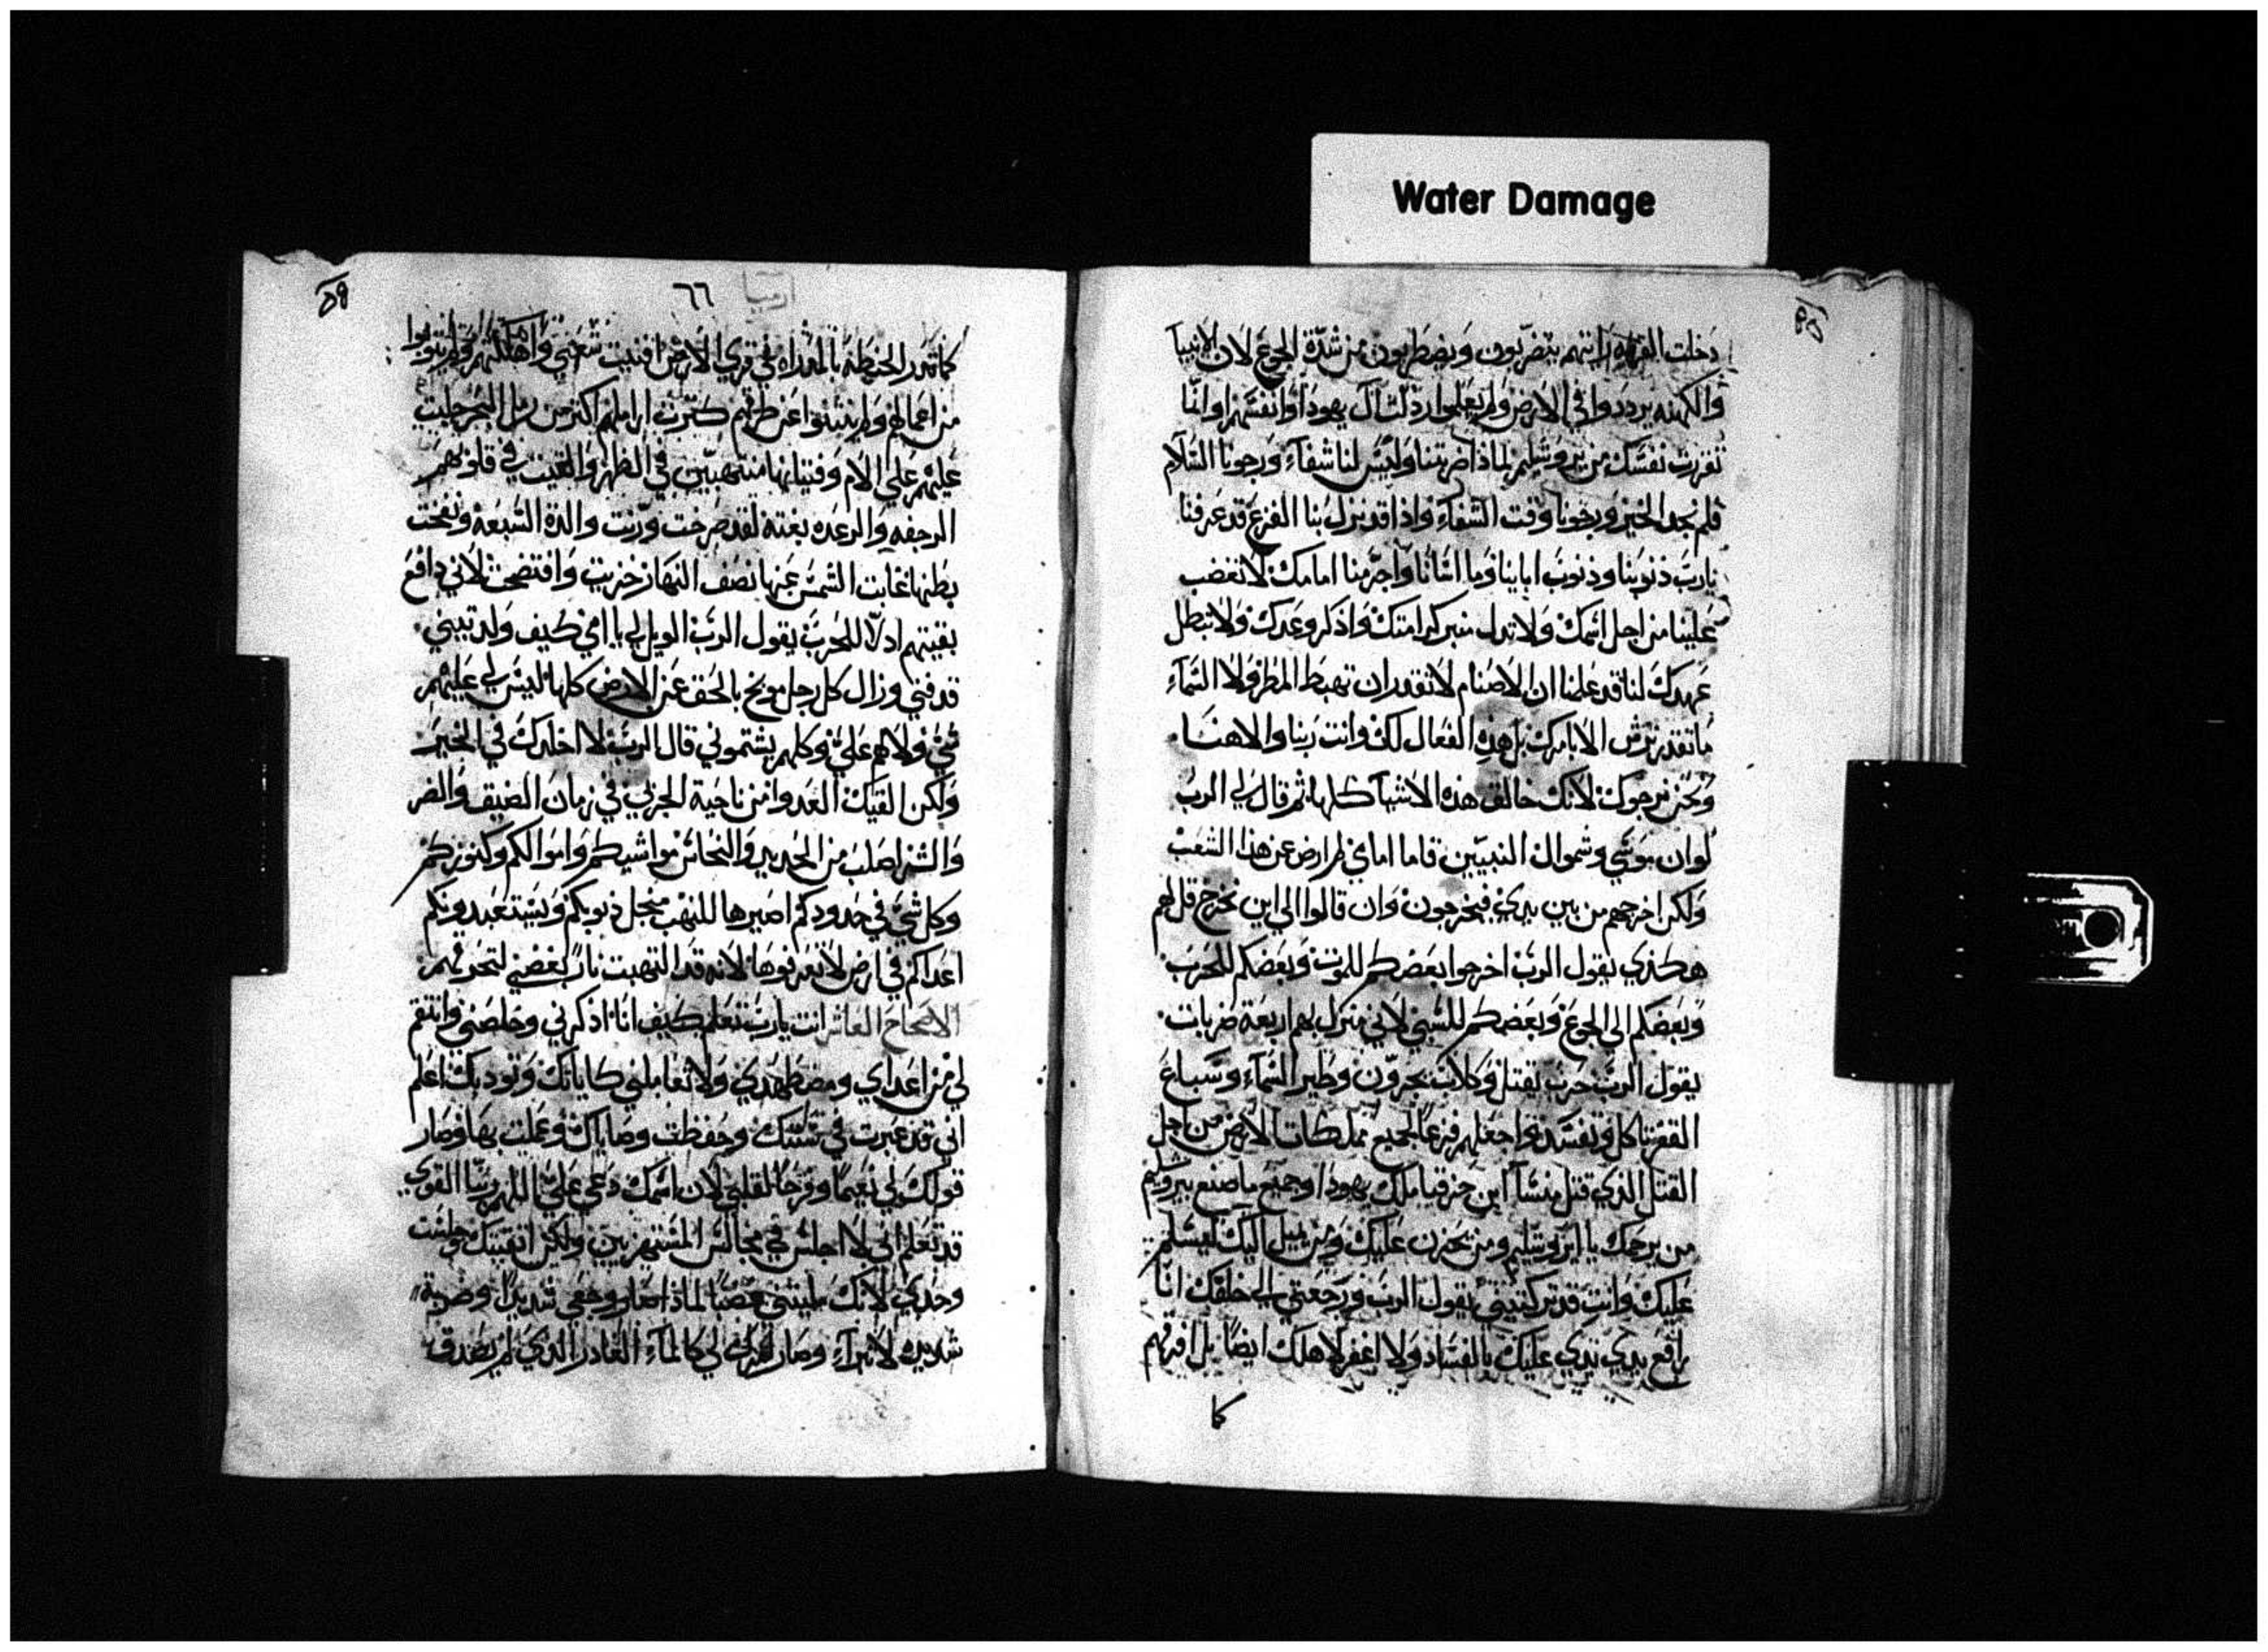 Water Damage
دخلت القريه رايتهم يتضربون ويضطربون من شدة الجوع لان الانبيا
والكهنه يرددوا في الارض ولم يعلموا رذلت آل يهودا وانفسهم او انما
تفررت نفسك من يروشليم لماذا ضربتنا وليس لنا شفآء ورجونا السلام
فلم نجد الخير ورجونا وقت الشفآء واذا قد نزل بنا الفزع قد عرفنا
يا رب ذنوبنا وذنوب اباينا وما اسانا واجرمنا امامك لا تغضب
علينا من اجل اسمك ولا تدل منبر كرامتك واذكر وعدك ولا تبطل
عهدك لنا قد علمنا ان الاصنام لا تقدر ان تهبط المطر ولا السمآء
ما تقدر ترش الا بامرك بل هذه الفعال لك وانت ربنا والاهنا
ونحن نرجوك لانك خالق هذه الاشيآ كلها ثم قال لي الرب
لو ان موسي وشموال النبيين قاما امامي لم ارض عن هذا الشعب
ولكن اخرجهم من بين يدي فيخرجون وان قالوا الي اين نخرج قل لهم
هكذي يقول الرب اخرجوا بعضكم للموت وبعضكم للحرب
وبعضكم الى الجوع وبعضكم للسبي لاني منزل بهم اربعة ضربات
يقول الرب حرب تقتل وكلاب يجرون وطير السمآء وسباع
القفر تاكل وتفسد واجعلهم فزعا لجميع مملكات الارض من اجل
القتل الذي قتل منسآ ابن حزقيا ملك يهودا وجميع ما صنع بيروشليم
من يرحمك يا ايروشليم ومن يحزن عليك ومن يميل اليك ليسلم
عليك وانت قد تركتيني يقول الرب ورجعتي الي خلفك انا
رافع يدي عليك بالفساد ولا اغفر لاهلك ايضا بل افرقهم
كما
ارميا
٦٦
كما تدر الحنطة بالمدراه في قري الارض افنيت شعبي واهلكتهم ولم يتوبوا
من اعمالهم ولم ينثنوا عن طرقهم كثرت اراملهم اكثر من رمل البحر جلبت
عليهم علي الام وفتيانها منتهبين في الظهر والقيت في قلوبهم
الرجفه والرعده بغته لقد صرخت ورنت والدة السبعة ونفخت
بطنها غابت الشمس عنها نصف النهار خزيت وافتضحت لاني دافع
بقيتهم ادلا للحرب يقول الرب الويل لي يا امي كيف ولدتيني
قد فني وزال كل رجل موبخ بالحق عن الارض كلها ليس لي عليهم
شي ولا لهم علي وكلهم يشتموني قال الرب لا اخليك في الخير
ولكن القيك العدوا من ناحية الجربي في زمان الضيق والضر
والشر اصلب من الحديد والنحاس مواشيكم واموالكم وكنوزكم
وكل شي في حدودكم اصيرها للنهب منجل ذنوبكم ويستعبدونكم
اعداكم في ارض لا تعرفوها لانه قد التهبت نار غضبي لتحرقهم
الاصحاح العاشر انت يا رب تعلم كيف انا اذكرني وخلصني وانتقم
لي من اعداي ومضطهدي ولا تعاملني كاياتك وتوديك اعلم
اني قد عبرت في سنتك وحفظت وصاياك وعملت بها وصار
قولك لي نعيما وفرحا لقلبي لان اسمك دعي علي يا اللهم ربنا القوي
قد تعلم اني لا اجلس في مجالس المستهزيين ولكن اتقيتك وجلست
وحدي لانك مليتني غضبا لماذا صار وجعي شديدا وضربة
شديده لا تبرآء وصار لي كالمآء الغادر الذي لم يصدق